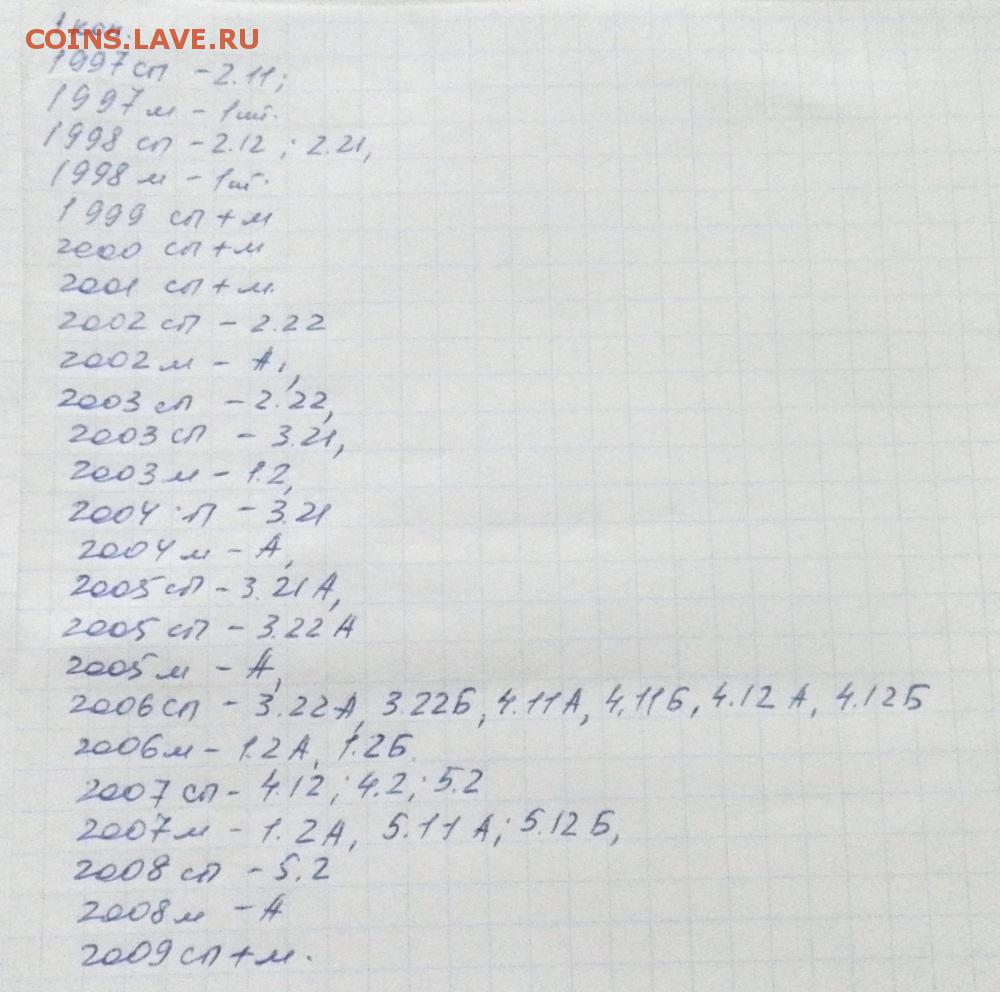 1 коп.
COINS.LAVE.RU
1997 сп - 2.11;
1997 м - 1 шт.
1998 сп - 2.12 ; 2.21,
1998 м - 1 шт.
1999 сп + м
2000 сп + м
2001 сп + м.
2002 сп - 2.22
2002 м - А,
2003 сп - 2.22,
2003 сп - 3.21,
2003 м - 1.2,
2004 сп - 3.21
2004 м - А,
2005 сп - 3.21 А,
2005 сп - 3.22 А
2005 м - А,
2006 сп - 3.22А, 3.22Б, 4.11А, 4.11Б, 4.12А, 4.12Б
2006 м - 1.2А, 1.2Б.
2007 сп - 4.12; 4.2; 5.2
2007 м - 1.2А, 5.11А; 5.12Б,
2008 сп - 5.2
2008 м - А
2009 сп + м.